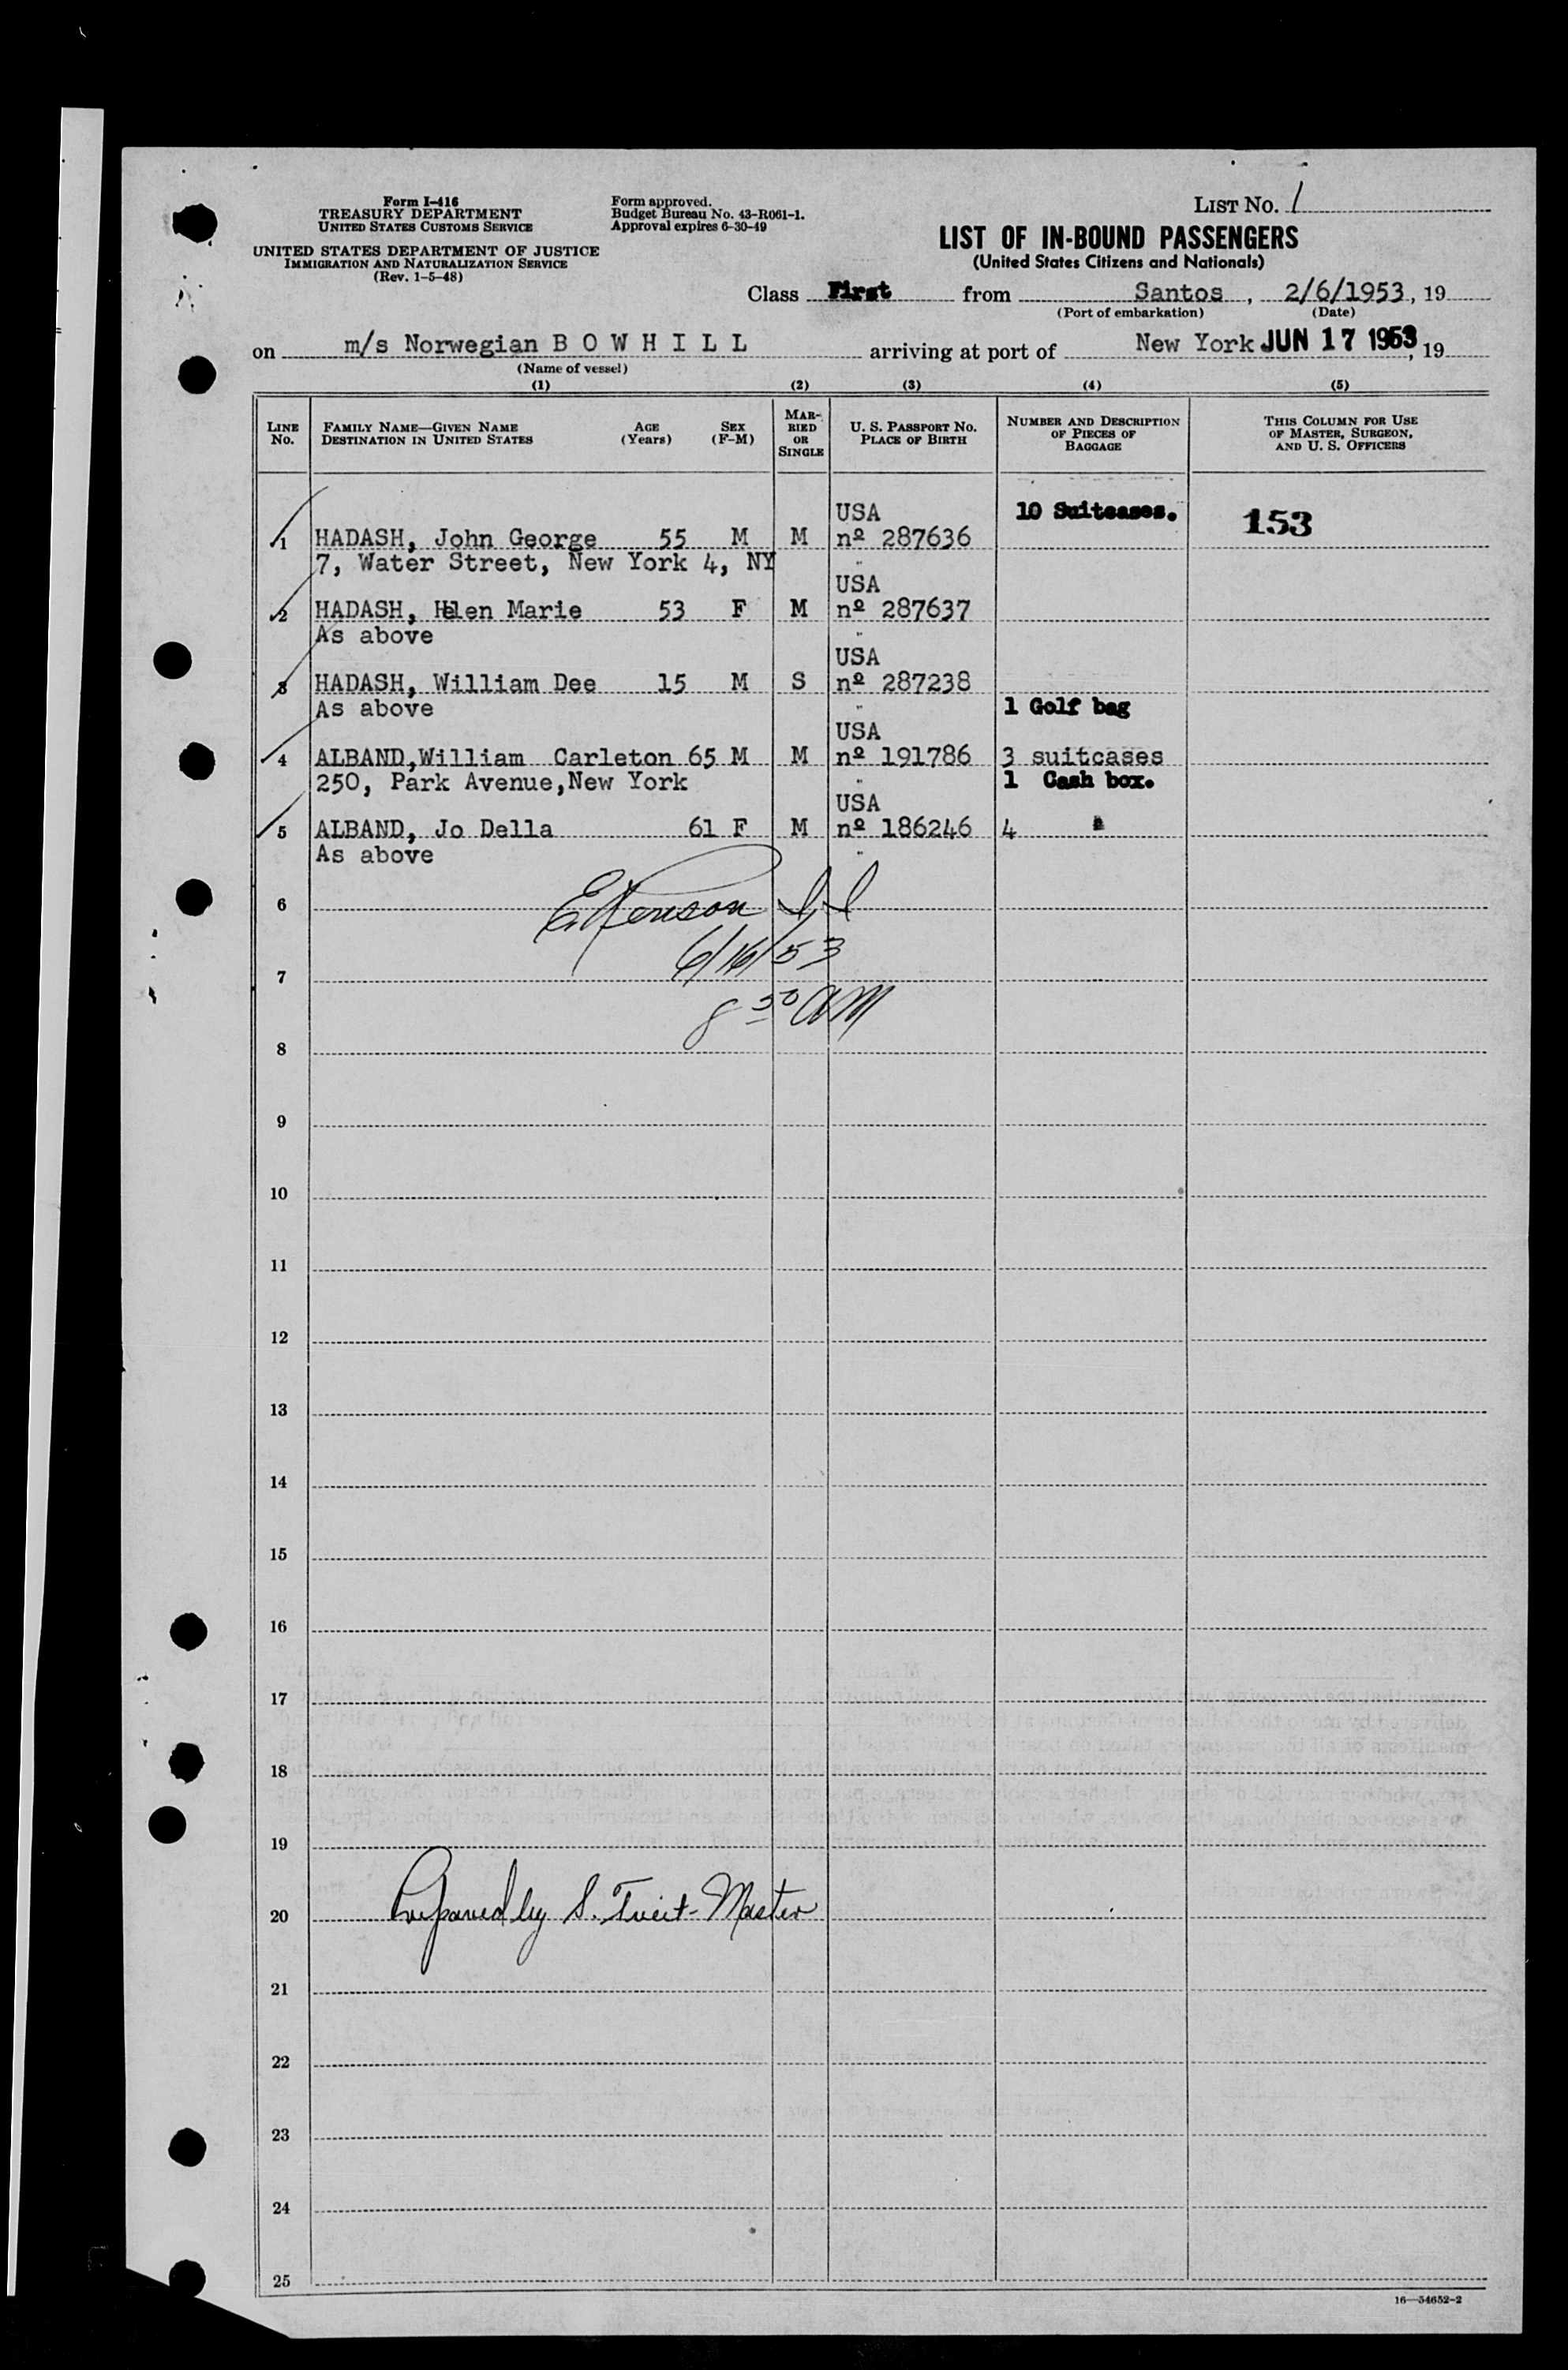 Form I-416
TREASURY DEPARTMENT
UNITED STATES CUSTOMS SERVICE
UNITED STATES DEPARTMENT OF JUSTICE
IMMIGRATION AND NATURALIZATION SERVICE
(Rev. 1-5-48)
Form approved.
Budget Bureau No. 43-R061-1.
Approval expires 6-30-49
LIST No. 1
LIST OF IN-BOUND PASSENGERS
(United States Citizens and Nationals)
Class First from Santos, 2/6/1953, 19
(Port of embarkation) (Date)
on m/s Norwegian B O W H I L L arriving at port of New York JUN 17 1953, 19
(Name of vessel)
(1) (2) (3) (4) (5)
LINE No.
FAMILY NAME—GIVEN NAME
DESTINATION IN UNITED STATES
AGE (Years)
SEX (F-M)
MARRIED OR SINGLE
U. S. PASSPORT No.
PLACE OF BIRTH
NUMBER AND DESCRIPTION OF PIECES OF BAGGAGE
THIS COLUMN FOR USE OF MASTER, SURGEON, AND U. S. OFFICERS
USA 10 Suitcases. 153
1 HADASH, John George 55 M M nº 287636
7, Water Street, New York 4, NY "
USA
2 HADASH, Helen Marie 53 F M nº 287637
As above "
USA
3 HADASH, William Dee 15 M S nº 287238
As above " 1 Golf bag
USA
4 ALBAND,William Carleton 65 M M nº 191786 3 suitcases
250, Park Avenue,New York " 1 Cash box.
USA
5 ALBAND, Jo Della 61 F M nº 186246 4 "
As above "
6
6/16/53
7
8 30 AM
8
9
10
11
12
13
14
15
16
17
18
19
20 Prepared by S. Tveit - Master
21
22
23
24
25
16—54652-2